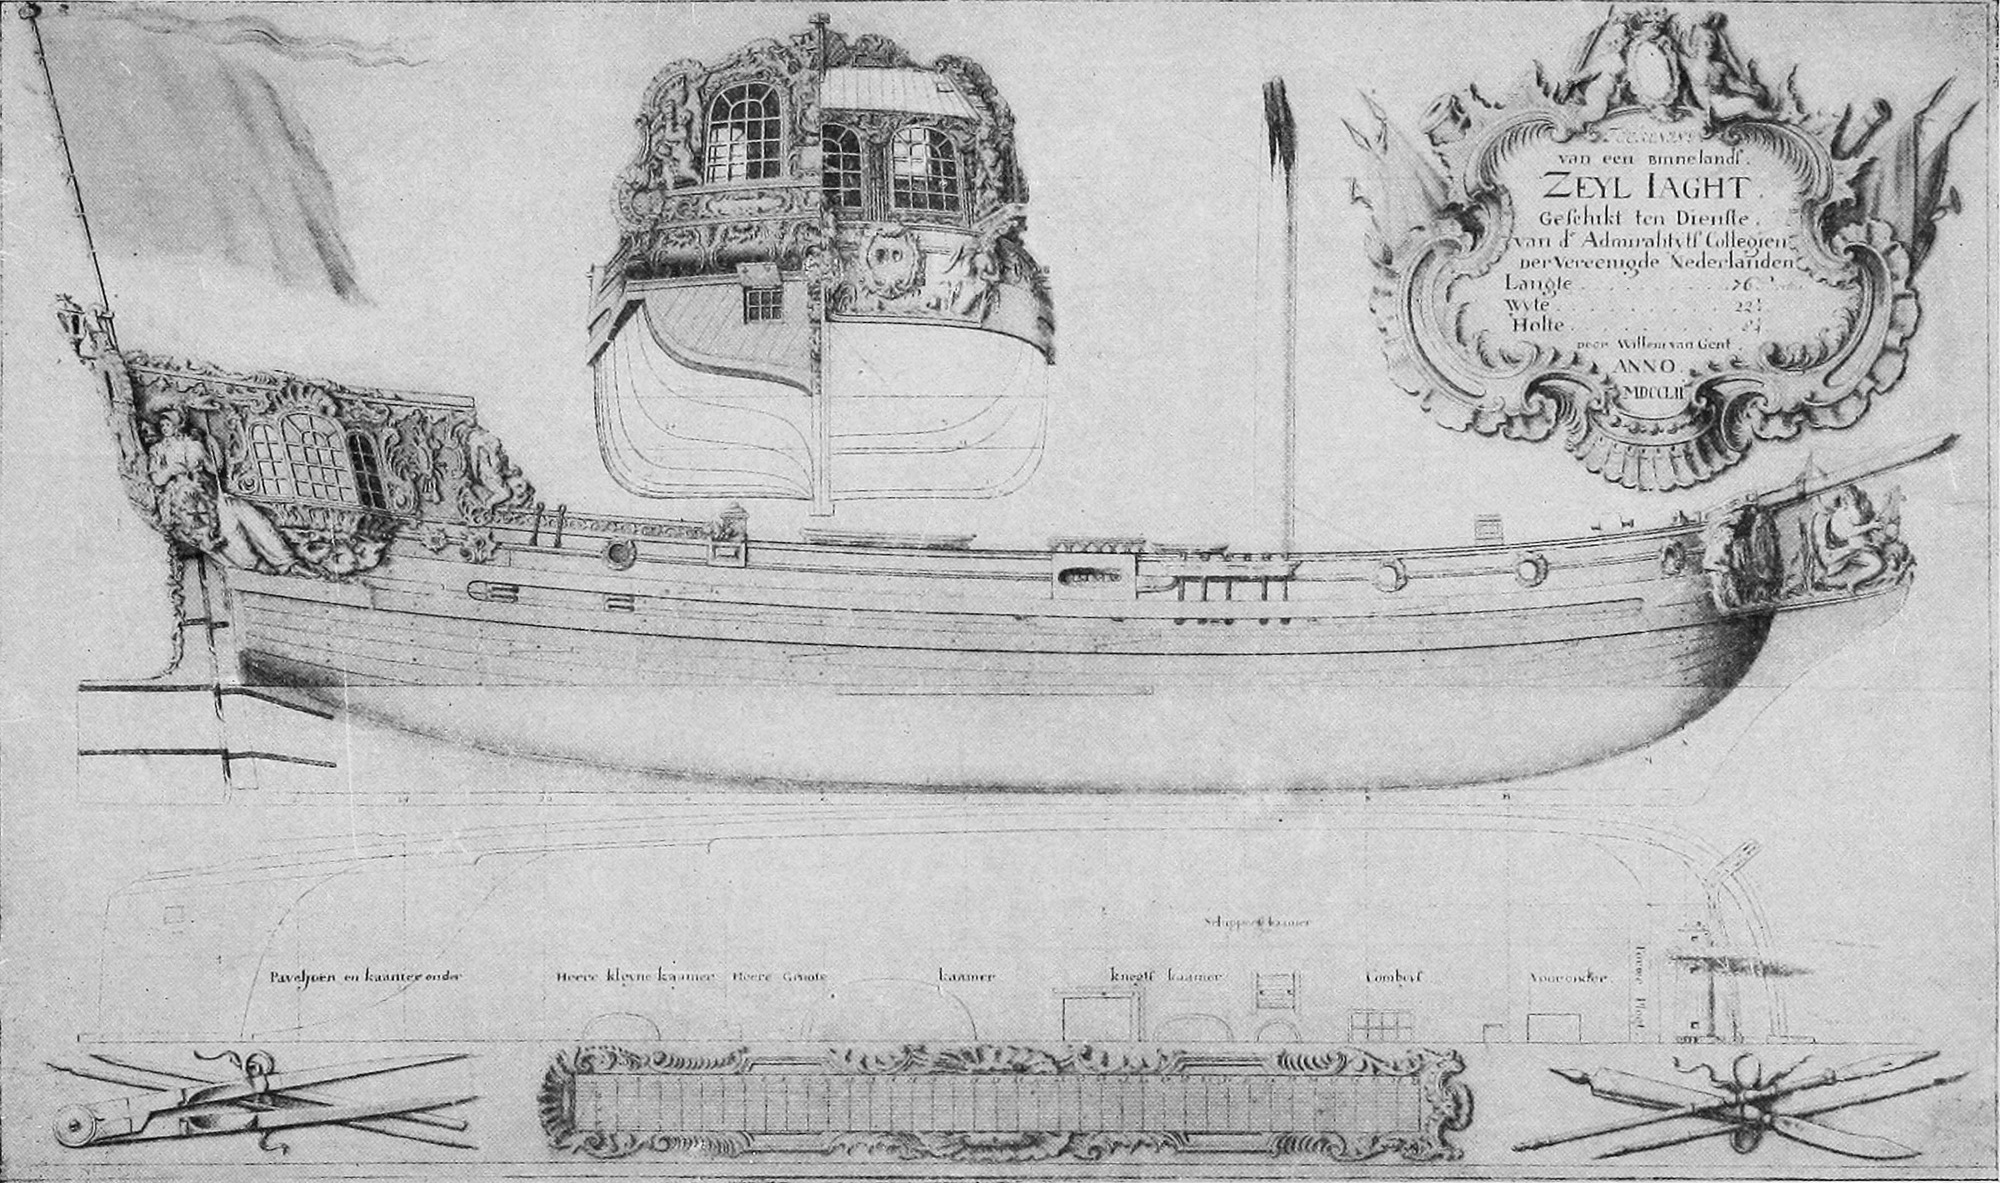 van een Binnelandſ.
ZEYL IAGHT.
Geſchikt ten Dienſte.
van dᵉ Admiralitytſ Collegien
Der Vereenigde Nederlanden
Langte . . . . . . . . 76
Wyte . . . . . . . . 22¼
Holte . . . . . . . .
Door Willem van Gent.
ANNO.
MDCCLII
Schippers kaamer
Paveljoen en kaamer onder
Heere kleyne kaamer
Heere Groote
kaamer
knegtſ kaamer
Combuyſ
Vooronder